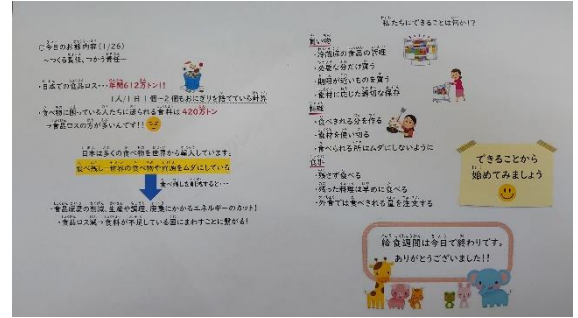 ○今日のお話内容(1/26)
～つくる責任、つかう責任～
・日本での食品ロス…年間612万トン!!
1人/1日 1個~2個もおにぎりを捨てている計算
・食べ物に困っている人たちに送られる食料は420万トン
→食品ロスの方が多いんです!!
日本は多くの食べ物を世界から輸入しています。
食べ残し=世界の食べ物や資源をムダにしている
食べ残しを削減すると…
・食品廃棄の削減、生産や調理、廃棄にかかるエネルギーのカット!
・食品ロス減→食料が不足している国にまわすことに繋がる!
私たちにできることは何か!?
買い物
・冷蔵庫の食品の管理
・必要な分だけ買う
・期限が近いものを買う
・食材に応じた適切な保存
・食べきれる分を作る
・食材を使い切る
・食べられる所はムダにしないように
食事
・残さず食べる
・残った料理は早めに食べる
・外食では食べきれる量を注文する
できることから
始めてみましょう
給食週間は今日で終わりです。
ありがとうございました!!